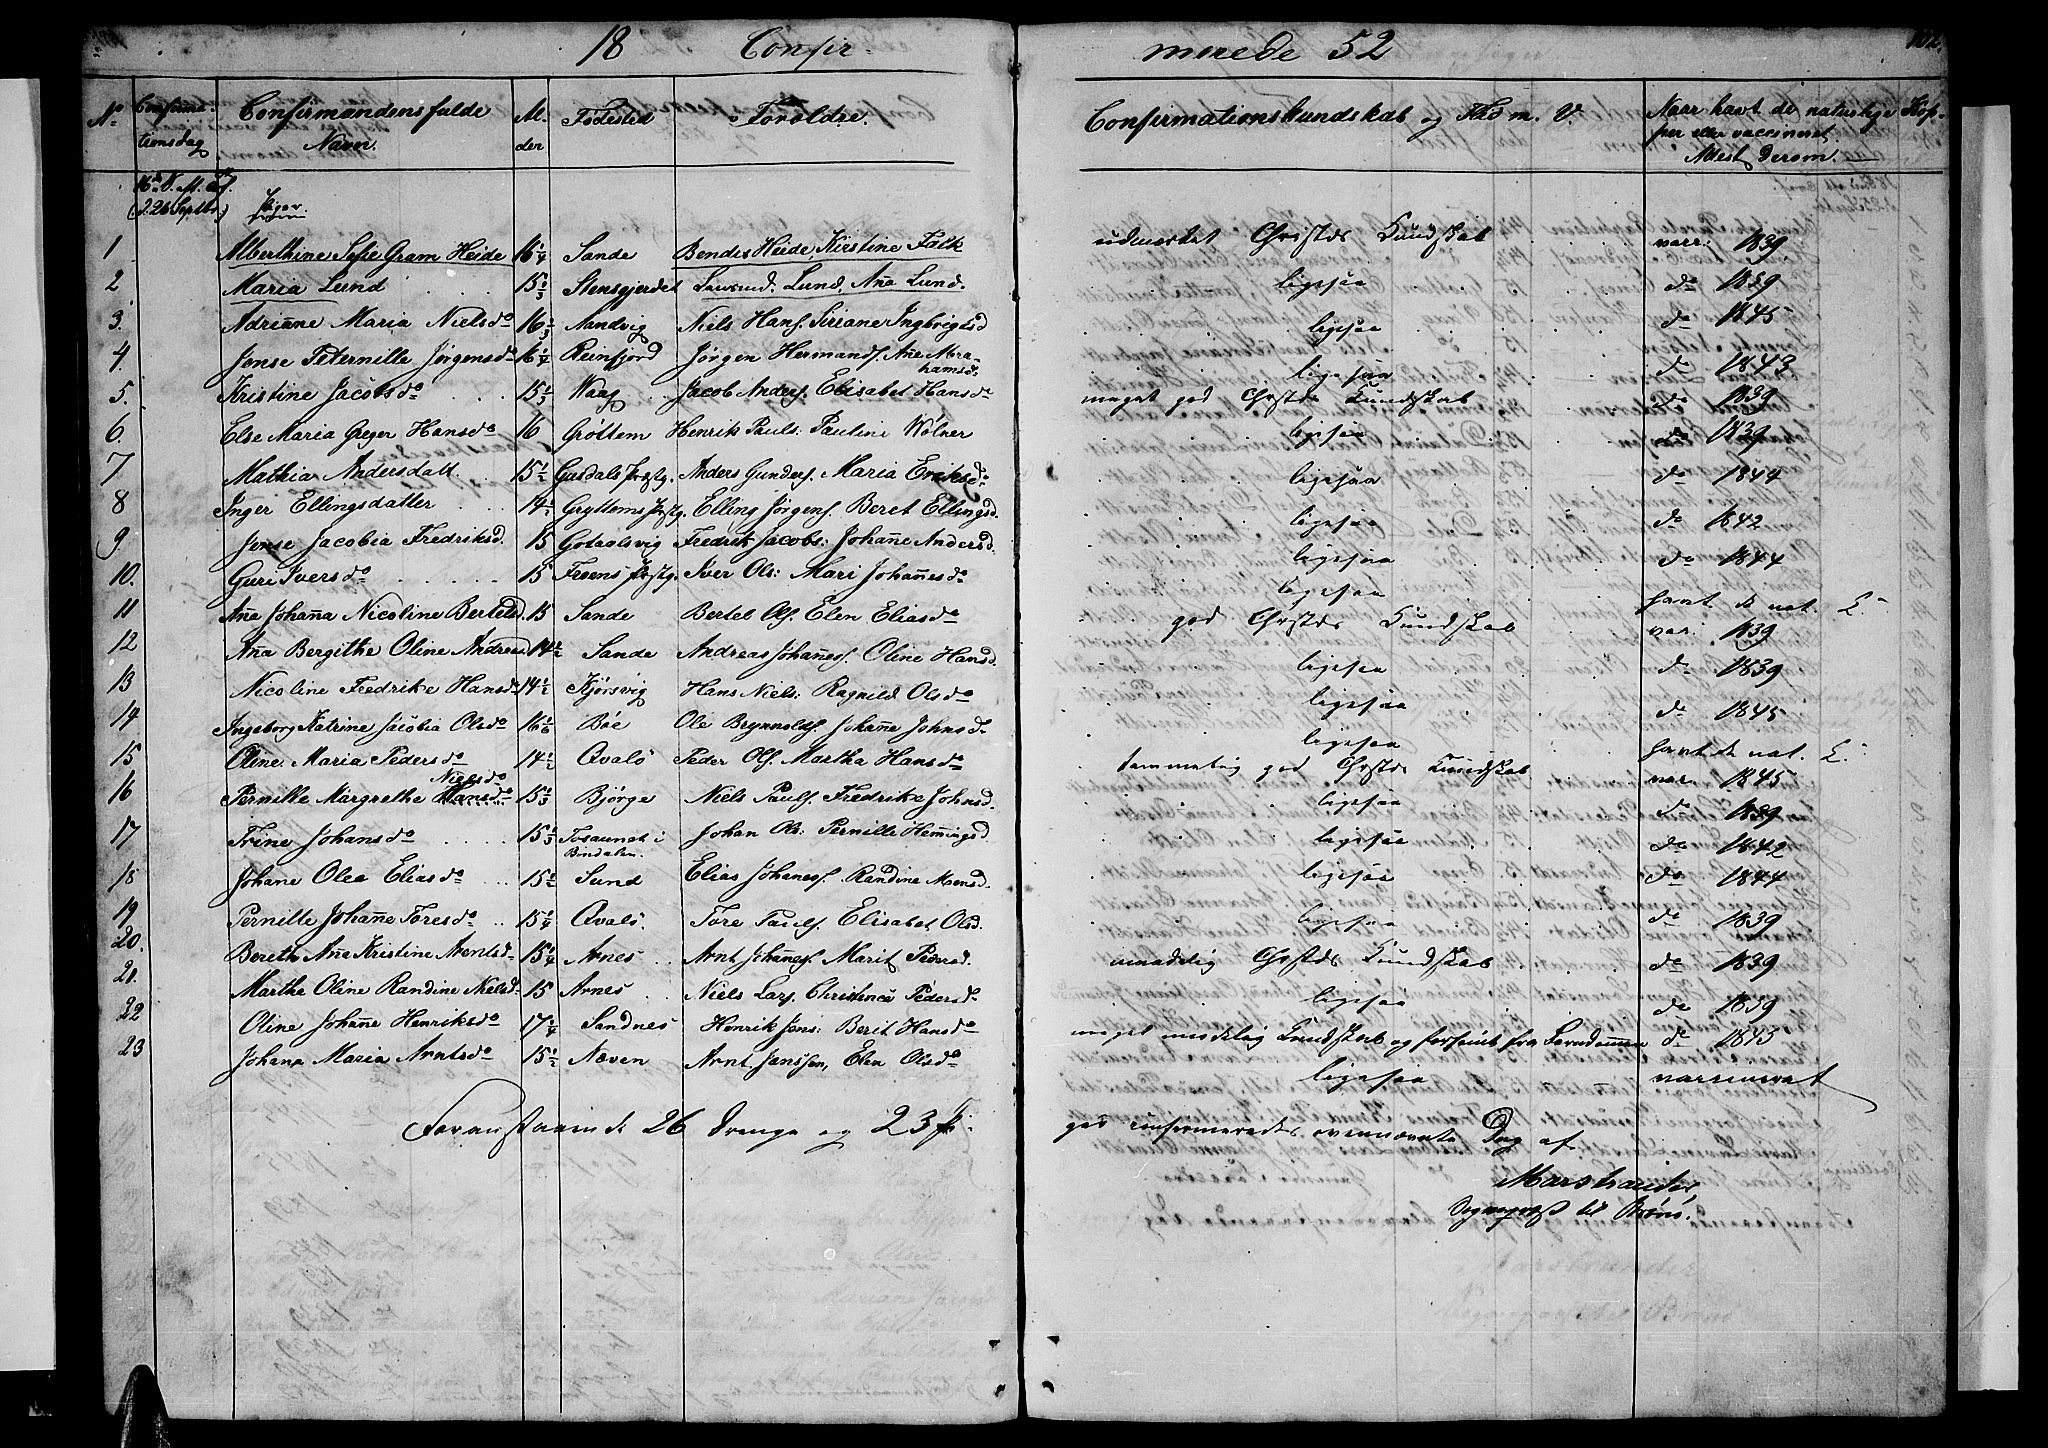 18 Confirmerede 52
No Confirmationsdag Confirmandens fulde Navn. Alder Fødested Forældre. Confirmationskundskab og Flid m. V. Naar havt de naturlige Kopper eller vaccineret, Attest derom.
(d. 26 Septbr.) Piger
1 Alberthine Sofie Gram Heide 16 1/4 Sande Bendix Heide, Kirstine Falk udmærket Christds Kundskab vacc. 1839
2 Maria Lund 15 1/3 Stensgjerdet Laurud. Lund, Aña Lund. ligesaa do 1839
3. Adrianne Maria Nielsdo 16 2/3 Sandvig Niels Hans. Siriane Ingbrigtsd ligesaa do 1845
4. Jense Peternille Jørgensdo 16 1/4 Reinfjord Jørgen Hermands. Añe Abrahamsd. ligesaa do 1843
5. Kristine Jacobsdo 15 1/3 Vaag Jacob Anders. Elisabet Hansdo meget god Christds Kundskab do 1839
6. Else Maria Greger Hansdo 16 Grøttem Henrik Pauls: Paulini Wolner ligesaa do 1839
7 Mathia Andersdatt. 15 1/2 Gusdals Præstg. Anders Gunders. Maria Eriksdo ligesaa do 1844
8 Inger Ellingsdatter 14 1/2 Gryttems Præstg. Elling Jørgens. Beret Ellingsd. ligesaa do 1842
9 Jense Jacobia Fredriksd. 15 Gotaalsvig Fredrik Jacobs: Johañe Andersd. ligesaa do 1844
10. Guri Iversdo 15 Froens Præstg. Iver Ols: Mari Johañesdo ligesaa havt de nat. K.
11 Aña Johaña Nicoline Bertelsd. 15 Sande Bertel Ols. Elen Eliasdo god Christds Kundskab vac: 1839
12 Aña Bergithe Oline Andreasd 14 1/2 Sande Andreas Johañes. Oline Hansd. ligesaa do 1839
13 Nicoline Fredrike Hansdo 14 1/2 Kjørsvig Hans Niels: Ragnild Olsdo ligesaa do 1845
14 Ingeborg Katrine Jacobia Olsdo 16 1/6 Bøe Ole Brynnolts. Johañe Johnsd. ligesaa havt de nat. K.
15 Oline Maria Pedersdo 14 1/2 Qvalø Peder Ols. Martha Hansdo temmelig god Christds Kundskab vac. 1845
16 Pernille Margrethe Hansdo Nielsdo 15 1/3 Bjørge Niels Pauls. Fredrike Johnsd. ligesaa do 1839
17 Trine Johansdo 15 1/3 Tosaunet i Bindalen Johan Ols: Pernille Hemingsd. ligesaa do 1842
18 Johane Olea Eliasdo 15 1/2 Sund Elias Johanes. Randine Monsd. ligesaa do 1844
19 Pernille Johañe Toresdo 15 1/4 Qvalø. Tore Pauls. Elisabet Olsd. ligesaa do 1839
20. Bereth Aña Kristine Arntsd. 15 1/4 Arnes Arnt Johañes. Marit Pedersd. maadelig Christds Kundskab do 1839
21. Marthe Oline Randine Nielsd. 15 Arnes Niels Lars. Christence Pedersdo ligesaa do 1839
22 Oline Johañe Henriksdo 17 1/4 Sandnes Henrik Jens: Berit Hansdo meget maadelig Kundskab og forsømt fra Barndommen do 1845
23 Johana Maria Arntsdo 15 1/2 Næven Arnt Janssen, Elen Olsdo ligesaa vaccineret
Foranstaaende 26 Drenge og 23 Piger confirmeredes ovennævnte Dag af
Marstrander
Sognepræst til Brønø.